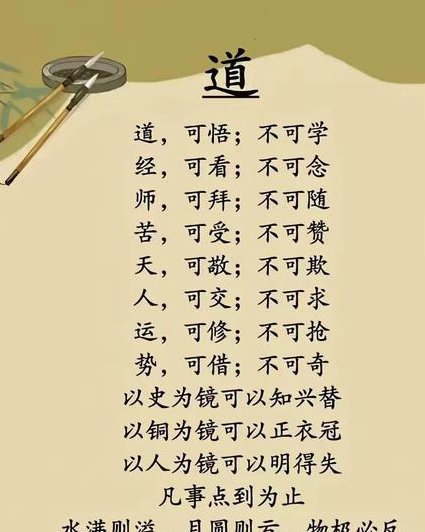 道
道，可悟；不可学
经，可看；不可念
师，可拜；不可随
苦，可受；不可赞
天，可敬；不可欺
人，可交；不可求
运，可修；不可抢
势，可借；不可奇
以史为镜可以知兴替
以铜为镜可以正衣冠
以人为镜可以明得失
凡事点到为止
水满则溢，月圆则亏，物极必反